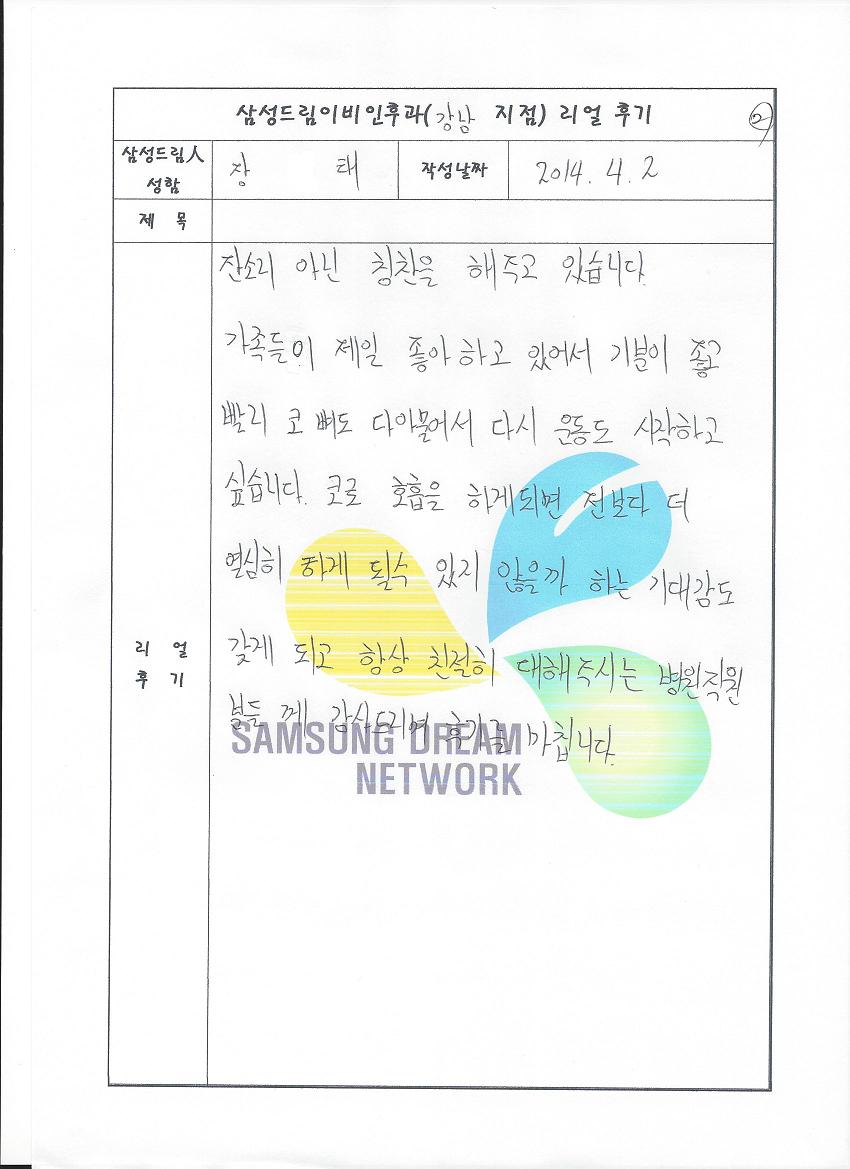 삼성드림이비인후과(강남 지점) 리얼 후기 ②
삼성드림人 성함 장 태 작성날짜 2014. 4. 2
제 목
리 얼 후 기
잔소리 아닌 칭찬을 해주고 있습니다.
가족들이 제일 좋아하고 있어서 기분이 좋고
빨리 코 뼈도 다아물어서 다시 운동도 시작하고
싶습니다. 코로 호흡을 하게되면 전보다 더
열심히 하게 될수 있지 않을까 하는 기대감도
갖게 되고 항상 친절히 대해주시는 병원직원
분들 께 감사드리며 후기를 마칩니다.
SAMSUNG DREAM
NETWORK